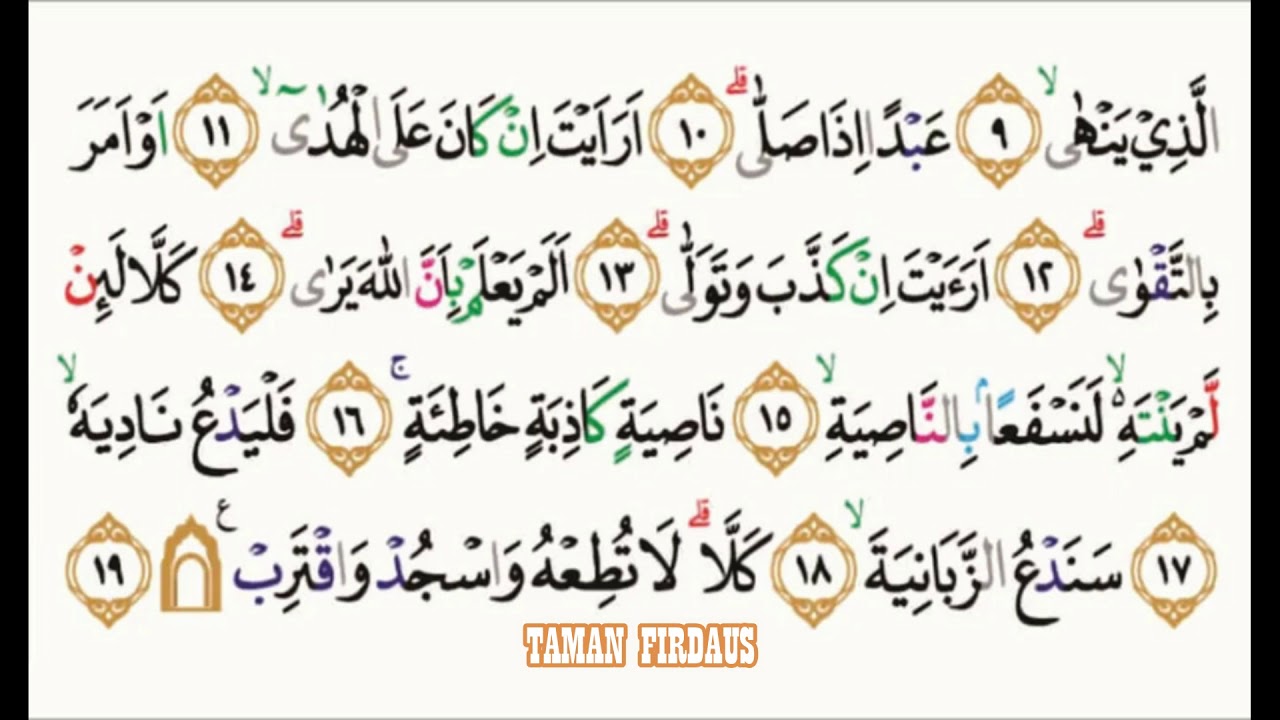 الَّذِيْ يَنْهٰىۙ ٩ عَبْدًا اِذَا صَلّٰىۗ ١٠ اَرَاَيْتَ اِنْ كَانَ عَلَى الْهُدٰىٓۙ ١١ اَوْ اَمَرَ
بِالتَّقْوٰىۗ ١٢ اَرَءَيْتَ اِنْ كَذَّبَ وَتَوَلّٰىۗ ١٣ اَلَمْ يَعْلَمْ بِاَنَّ اللّٰهَ يَرٰىۗ ١٤ كَلَّا لَئِنْ
لَّمْ يَنْتَهِ ەۙ لَنَسْفَعًاۢ بِالنَّاصِيَةِۙ ١٥ نَاصِيَةٍ كَاذِبَةٍ خَاطِئَةٍۚ ١٦ فَلْيَدْعُ نَادِيَهٗۙ
١٧ سَنَدْعُ الزَّبَانِيَةَۙ ١٨ كَلَّاۗ لَا تُطِعْهُ وَاسْجُدْ وَاقْتَرِبْ ࣖ ۩ ١٩
TAMAN FIRDAUS